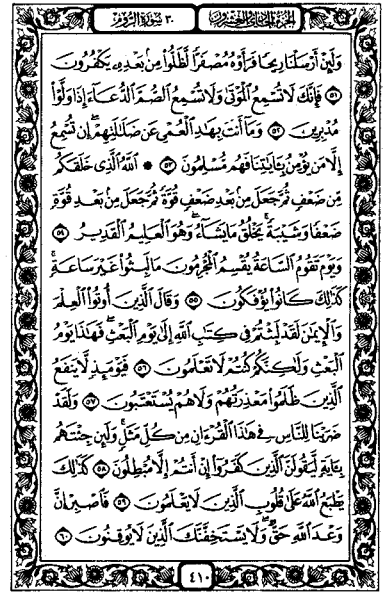 الجزء الحادي والعشرون
٣٠ سورة الروم
وَلَئِنْ أَرْسَلْنَا رِيحًا فَرَأَوْهُ مُصْفَرًّا لَّظَلُّوا۟ مِنۢ بَعْدِهِۦ يَكْفُرُونَ
٥١ فَإِنَّكَ لَا تُسْمِعُ ٱلْمَوْتَىٰ وَلَا تُسْمِعُ ٱلصُّمَّ ٱلدُّعَآءَ إِذَا وَلَّوْا۟
مُدْبِرِينَ ٥٢ وَمَآ أَنتَ بِهَٰدِ ٱلْعُمْىِ عَن ضَلَٰلَتِهِمْ ۖ إِن تُسْمِعُ
إِلَّا مَن يُؤْمِنُ بِـَٔايَٰتِنَا فَهُم مُّسْلِمُونَ ٥٣ ۞ ٱللَّهُ ٱلَّذِى خَلَقَكُم
مِّن ضَعْفٍ ثُمَّ جَعَلَ مِنۢ بَعْدِ ضَعْفٍ قُوَّةً ثُمَّ جَعَلَ مِنۢ بَعْدِ قُوَّةٍ
ضَعْفًا وَشَيْبَةً ۚ يَخْلُقُ مَا يَشَآءُ ۖ وَهُوَ ٱلْعَلِيمُ ٱلْقَدِيرُ ٥٤
وَيَوْمَ تَقُومُ ٱلسَّاعَةُ يُقْسِمُ ٱلْمُجْرِمُونَ مَا لَبِثُوا۟ غَيْرَ سَاعَةٍ ۚ
كَذَٰلِكَ كَانُوا۟ يُؤْفَكُونَ ٥٥ وَقَالَ ٱلَّذِينَ أُوتُوا۟ ٱلْعِلْمَ
وَٱلْإِيمَٰنَ لَقَدْ لَبِثْتُمْ فِى كِتَٰبِ ٱللَّهِ إِلَىٰ يَوْمِ ٱلْبَعْثِ ۖ فَهَٰذَا يَوْمُ
ٱلْبَعْثِ وَلَٰكِنَّكُمْ كُنتُمْ لَا تَعْلَمُونَ ٥٦ فَيَوْمَئِذٍ لَّا يَنفَعُ
ٱلَّذِينَ ظَلَمُوا۟ مَعْذِرَتُهُمْ وَلَا هُمْ يُسْتَعْتَبُونَ ٥٧ وَلَقَدْ
ضَرَبْنَا لِلنَّاسِ فِى هَٰذَا ٱلْقُرْءَانِ مِن كُلِّ مَثَلٍ ۚ وَلَئِن جِئْتَهُم
بِـَٔايَةٍ لَّيَقُولَنَّ ٱلَّذِينَ كَفَرُوٓا۟ إِنْ أَنتُمْ إِلَّا مُبْطِلُونَ ٥٨ كَذَٰلِكَ
يَطْبَعُ ٱللَّهُ عَلَىٰ قُلُوبِ ٱلَّذِينَ لَا يَعْلَمُونَ ٥٩ فَٱصْبِرْ إِنَّ
وَعْدَ ٱللَّهِ حَقٌّ ۖ وَلَا يَسْتَخِفَّنَّكَ ٱلَّذِينَ لَا يُوقِنُونَ ٦٠
٤١٠